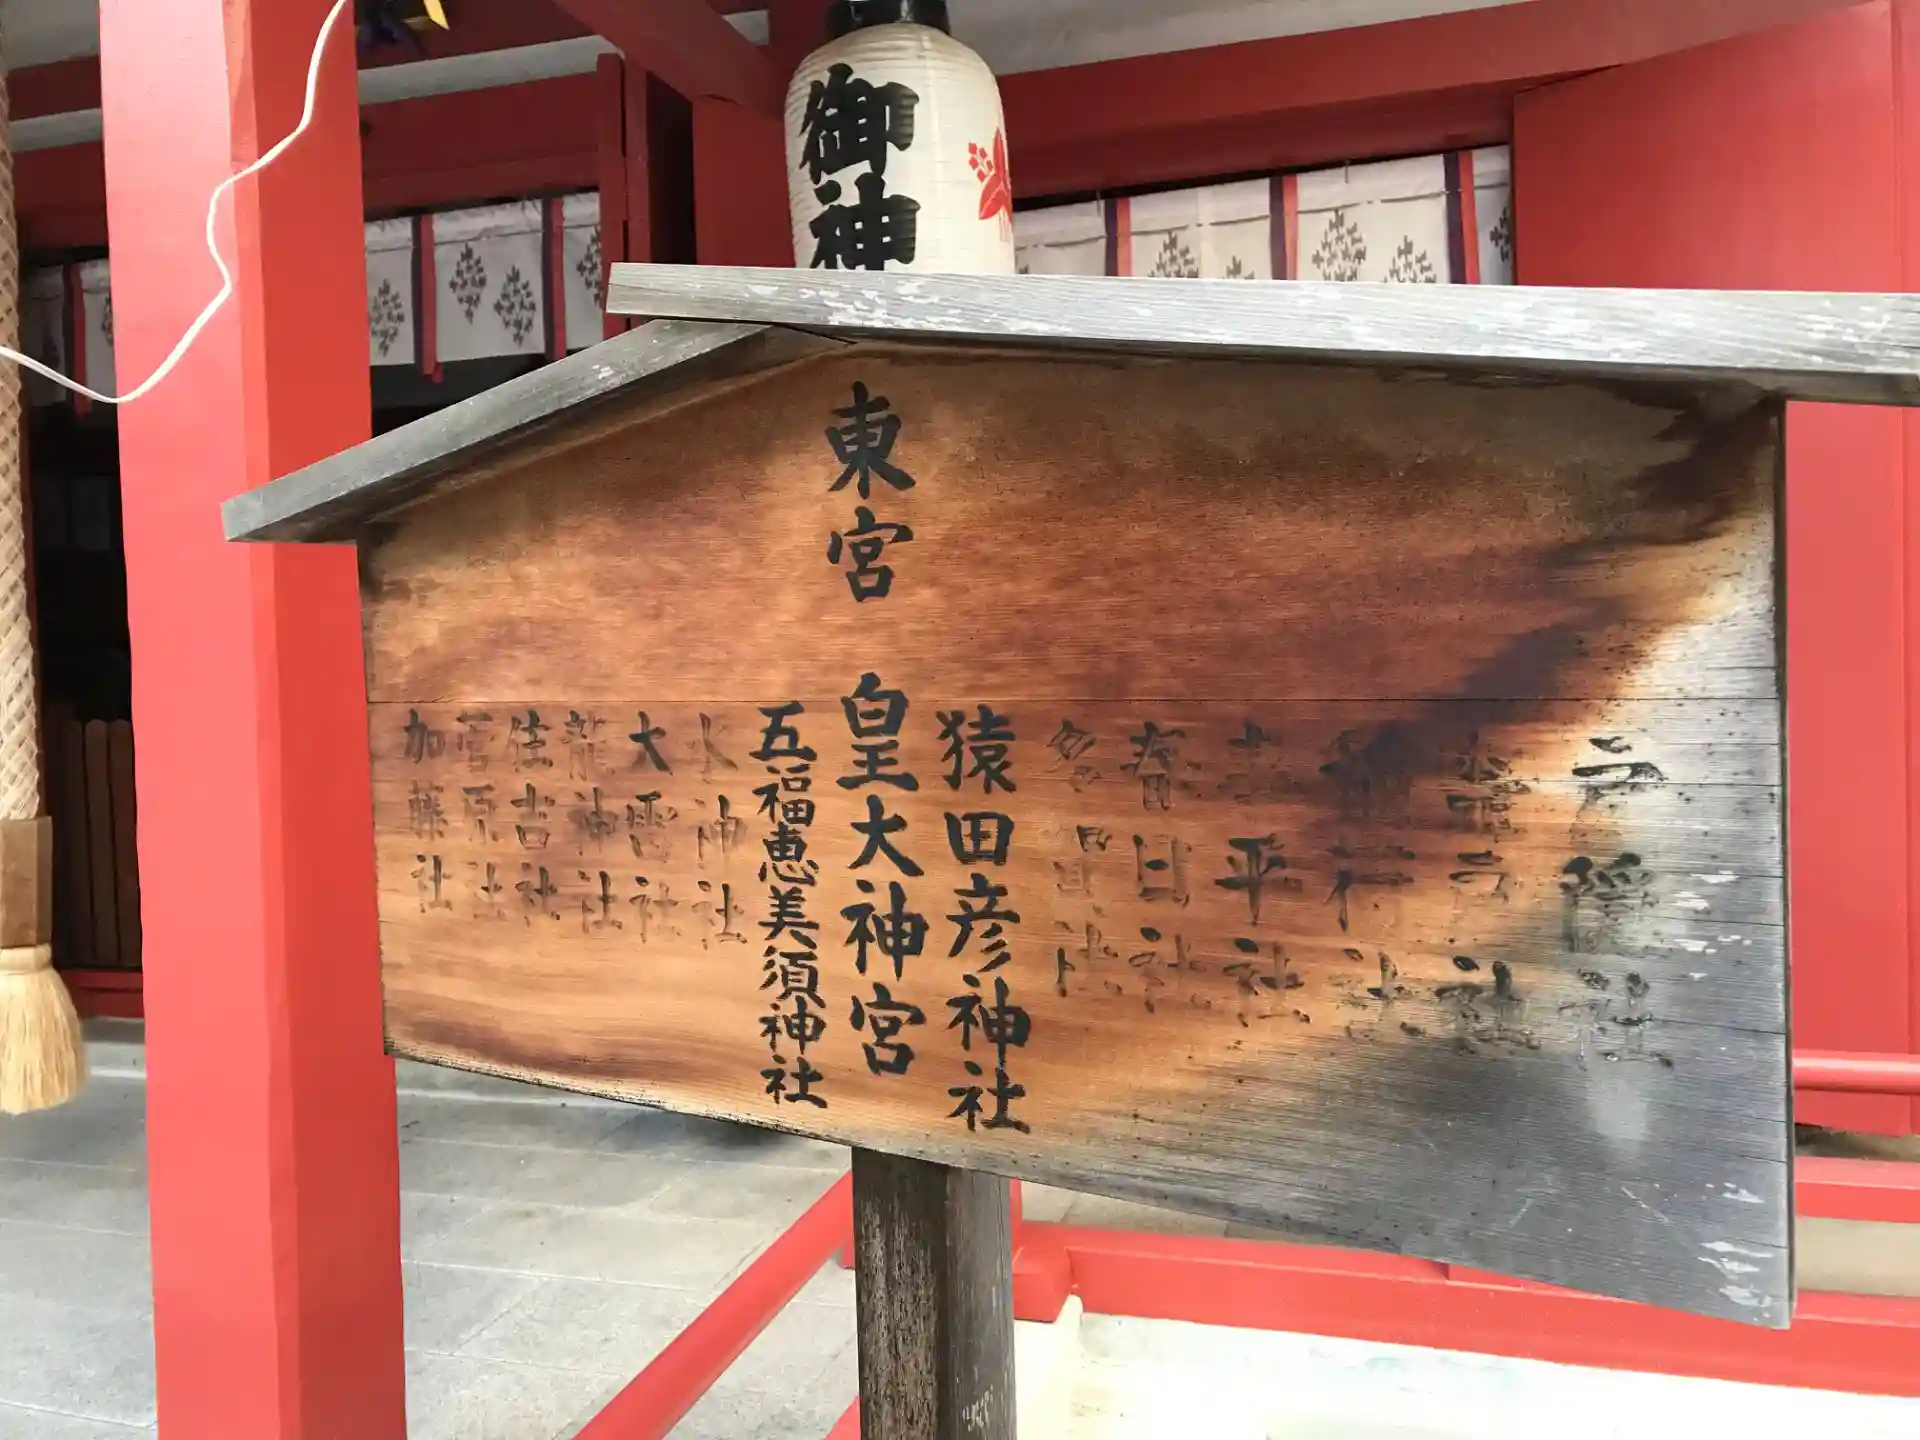 御神
東宮
戸隠社
秋葉社
春日社
平社
猿田彦神社
皇大神宮
五福恵美須神社
水神社
大雷社
龍神社
住吉社
菅原社
加藤社